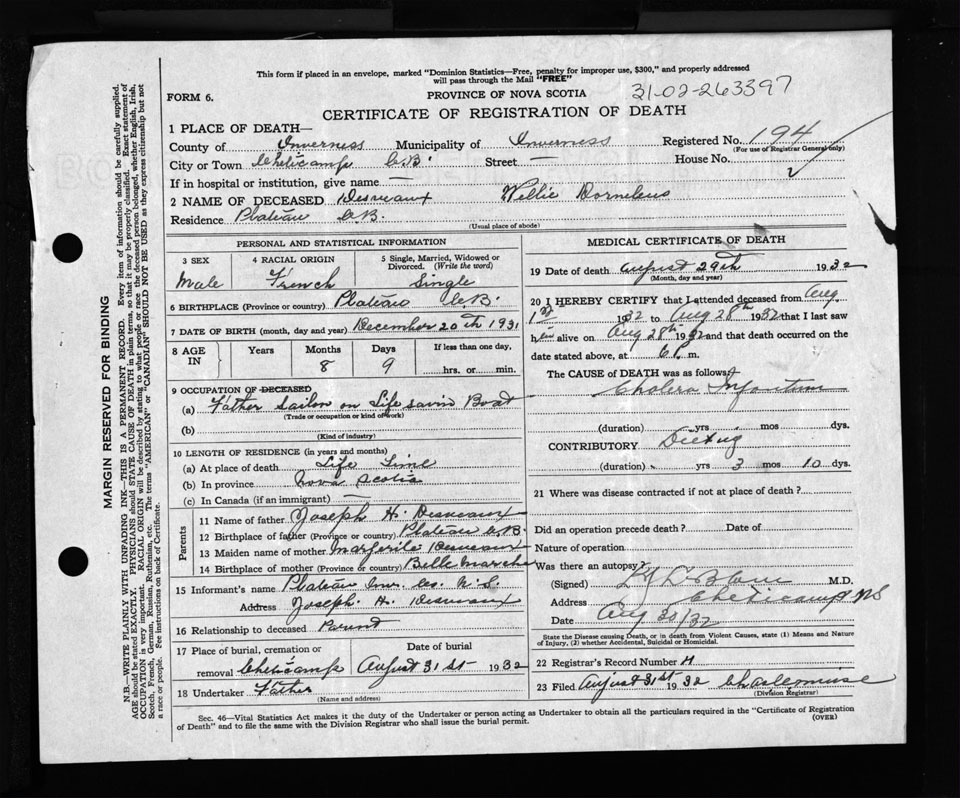 This form if placed in an envelope, marked "Dominion Statistics—Free, penalty for improper use, $300," and properly addressed
will pass through the Mail "FREE"
FORM 6.
PROVINCE OF NOVA SCOTIA
31-02-263397
CERTIFICATE OF REGISTRATION OF DEATH
1 PLACE OF DEATH—
County of Inverness Municipality of Inverness Registered No. 194
(For use of Registrar General only)
City or Town Cheticamp C.B. Street — House No.
If in hospital or institution, give name —
2 NAME OF DECEASED Desveaux Willie Cornelius
Residence Plateau C.B.
(Usual place of abode)
PERSONAL AND STATISTICAL INFORMATION
3 SEX
Male
4 RACIAL ORIGIN
French
5 Single, Married, Widowed or
Divorced. (Write the word)
Single
6 BIRTHPLACE (Province or country) Plateau C.B.
7 DATE OF BIRTH (month, day and year) December 20th 1931
8 AGE
IN
Years
Months
8
Days
9
If less than one day,
hrs. or min.
9 OCCUPATION OF DECEASED
(a) Father Sailor on Life savin Boat
(Trade or occupation or kind of work)
(b)
(Kind of industry)
10 LENGTH OF RESIDENCE (in years and months)
(a) At place of death Life Time
(b) In province Nova Scotia
(c) In Canada (if an immigrant) —
Parents
11 Name of father Joseph H. Desveaux
12 Birthplace of father (Province or country) Plateau C.B.
13 Maiden name of mother Margerite Desveaux
14 Birthplace of mother (Province or country) Belle Marche
15 Informant's name Plateau Inv. Co. N.S.
Address Joseph. H. Desveaux
16 Relationship to deceased Parent
17 Place of burial, cremation or Date of burial
removal Cheticamp August 31st 1932
18 Undertaker Father
(Name and address)
MEDICAL CERTIFICATE OF DEATH
19 Date of death August 29th 1932
(Month, day and year)
20 I HEREBY CERTIFY that I attended deceased from Aug.
1st 1932 to Aug 28th 1932 that I last saw
him alive on Aug 28th 1932 and that death occurred on the
date stated above, at 6 P. m.
The CAUSE of DEATH was as follows:
Cholera Infantum
(duration) yrs mos dys.
CONTRIBUTORY
(duration) yrs 3 mos 10 dys.
21 Where was disease contracted if not at place of death?
Did an operation precede death? Date of
Nature of operation
Was there an autopsy?
(Signed) M.D.
Address Cheticamp NS
Date Aug 30/32
State the Disease causing Death, or in death from Violent Causes, state (1) Means and Nature
of Injury, (2) whether Accidental, Suicidal or Homicidal.
22 Registrar's Record Number H
23 Filed August 31st 1932
(Division Registrar)
Sec. 46—Vital Statistics Act makes it the duty of the Undertaker or person acting as Undertaker to obtain all the particulars required in the "Certificate of Registration
of Death" and to file the same with the Division Registrar who shall issue the burial permit.
(OVER)
MARGIN RESERVED FOR BINDING
N.B.—WRITE PLAINLY WITH UNFADING INK—THIS IS A PERMANENT RECORD. Every item of information should be carefully supplied.
AGE should be stated EXACTLY. PHYSICIANS should STATE CAUSE OF DEATH in plain terms, so that it may be properly classified. Exact statement of
OCCUPATION is very important. RACIAL ORIGIN will be described by stating to what people or race the deceased person belonged, whether English, Irish,
Scotch, French, German, Russian, Ruthenian, etc. The terms "AMERICAN" or "CANADIAN" SHOULD NOT BE USED as they express citizenship but not
a race or people. See instructions on back of Certificate.